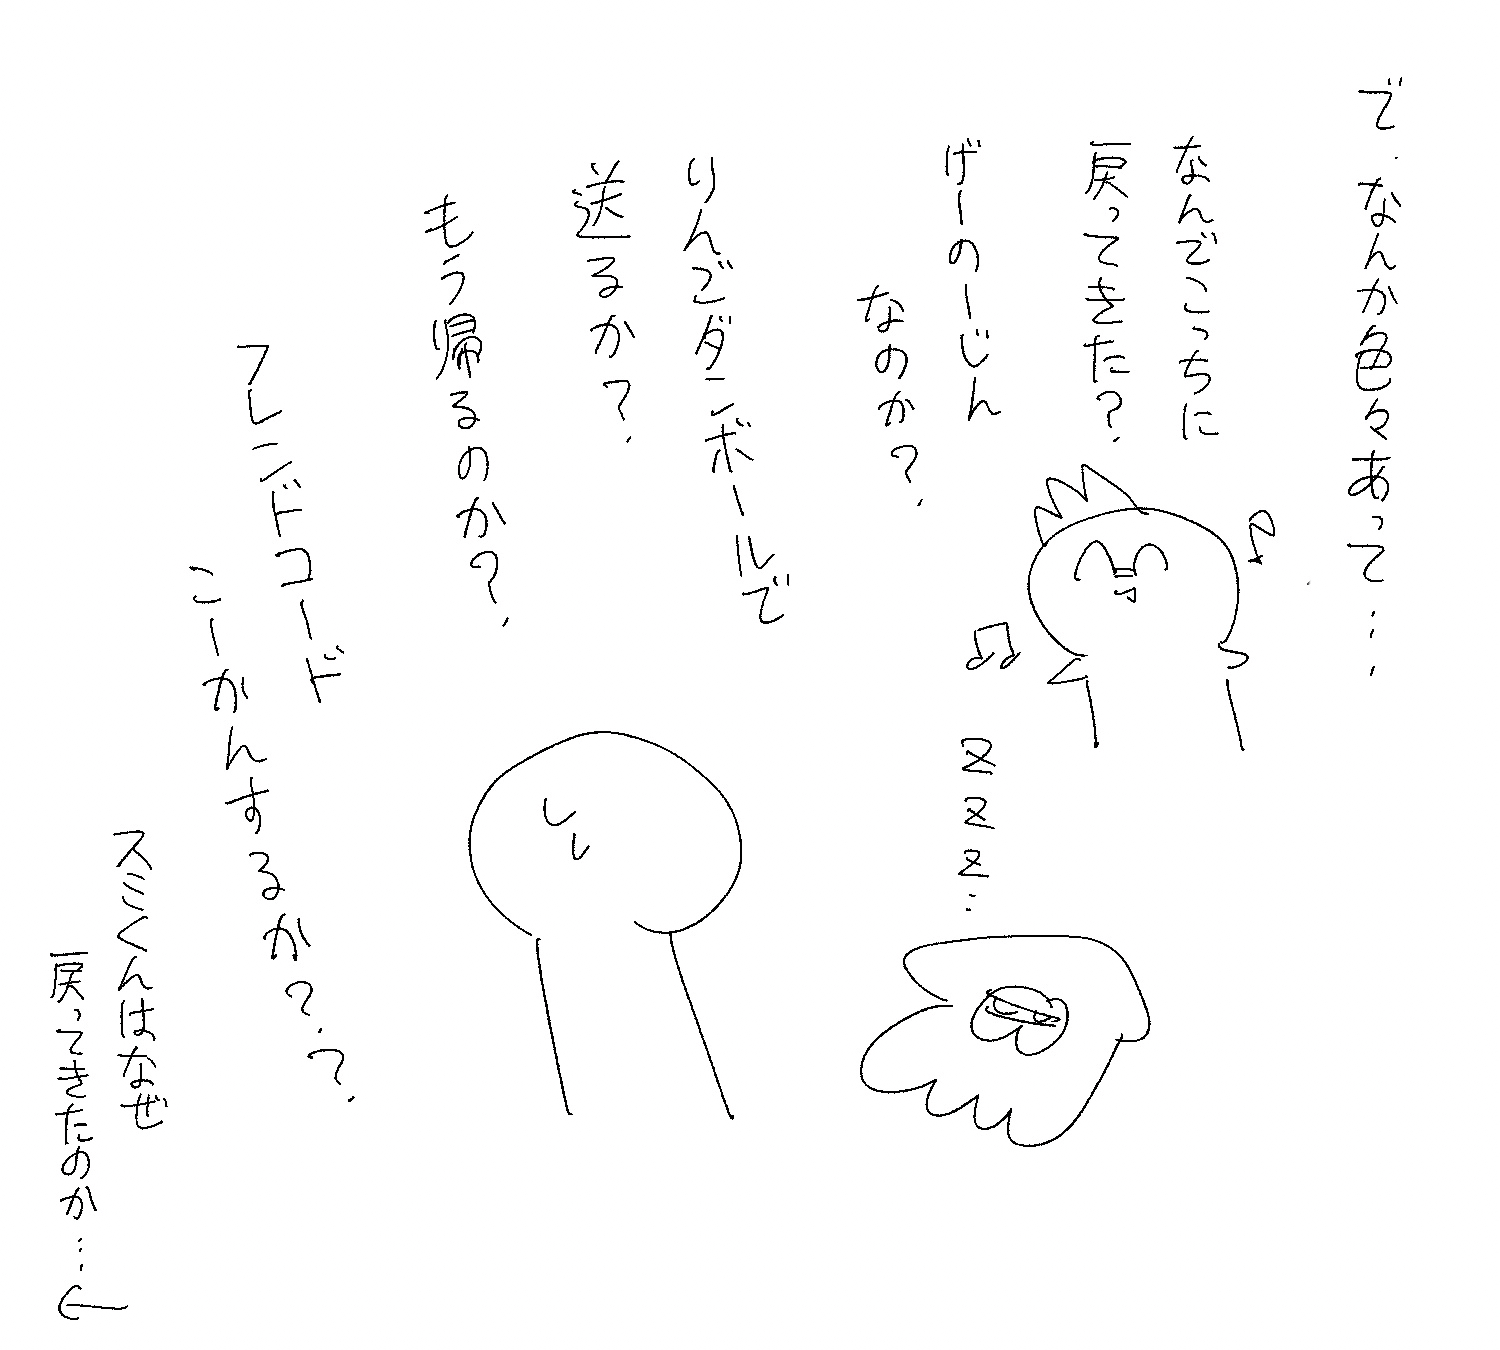 で、なんか色々あって…、
なんでこっちに
戻ってきた?
げーのーじん
なのか?
りんごダンボールで
送るか?
もう帰るのか?
フレンドコード
こーかんするか??
スミくんはなぜ
戻ってきたのか…
ZZZ…